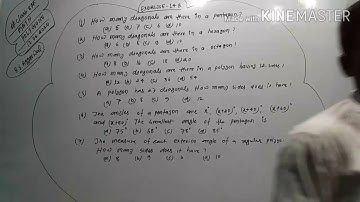 EXERCISE-14B
MADE WITH KINEMASTER
(1) How many diagonals are there in a pentagon?
(a) 5 (b) 7 (c) 6 (d) 10
(2) How many diagonals are there in a hexagon?
(a) 6 (b) 8 (c) 9 (d) 10
(3) How many diagonals are there in a octagon?
(a) 8 (b) 16 (c) 18 (d) 20
(4) How many diagonals are there in a polygon having 12 sides?
(a) 12 (b) 24 (c) 36 (d) 54
(5) A polygon has 27 diagonals How many sides does it have?
(a) 7 (b) 8 (c) 9 (d) 12
(6) The angles of a pentagon are x°, (x+20)°, (x+40)°, (x+60)°
and (x+80)°. The greatest angle of the pentagon is
(a) 75° (b) 68° (c) 78° (d) 85°
(7) The measure of each exterior angle of a regular polygon
How many sides does it have?
(a) 8 (b) 9 (c) 6 (d) 10